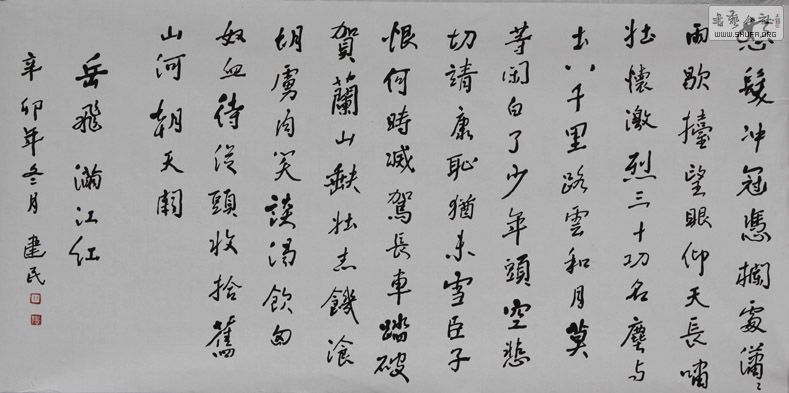 怒髮冲冠憑欄處瀟〻
雨歇擡望眼仰天長嘯
壮懷激烈三十功名塵与
土八千里路雲和月莫
等闲白了少年頭空悲
切靖康恥猶未雪臣子
恨何時滅駕長車踏破
賀蘭山缺壮志饑飡
胡虜肉笑談渴飲匈
奴血待從頭收拾舊
山河朝天闕
岳飛滿江红
辛卯年冬月建民
WWW.SHUFA.ORG